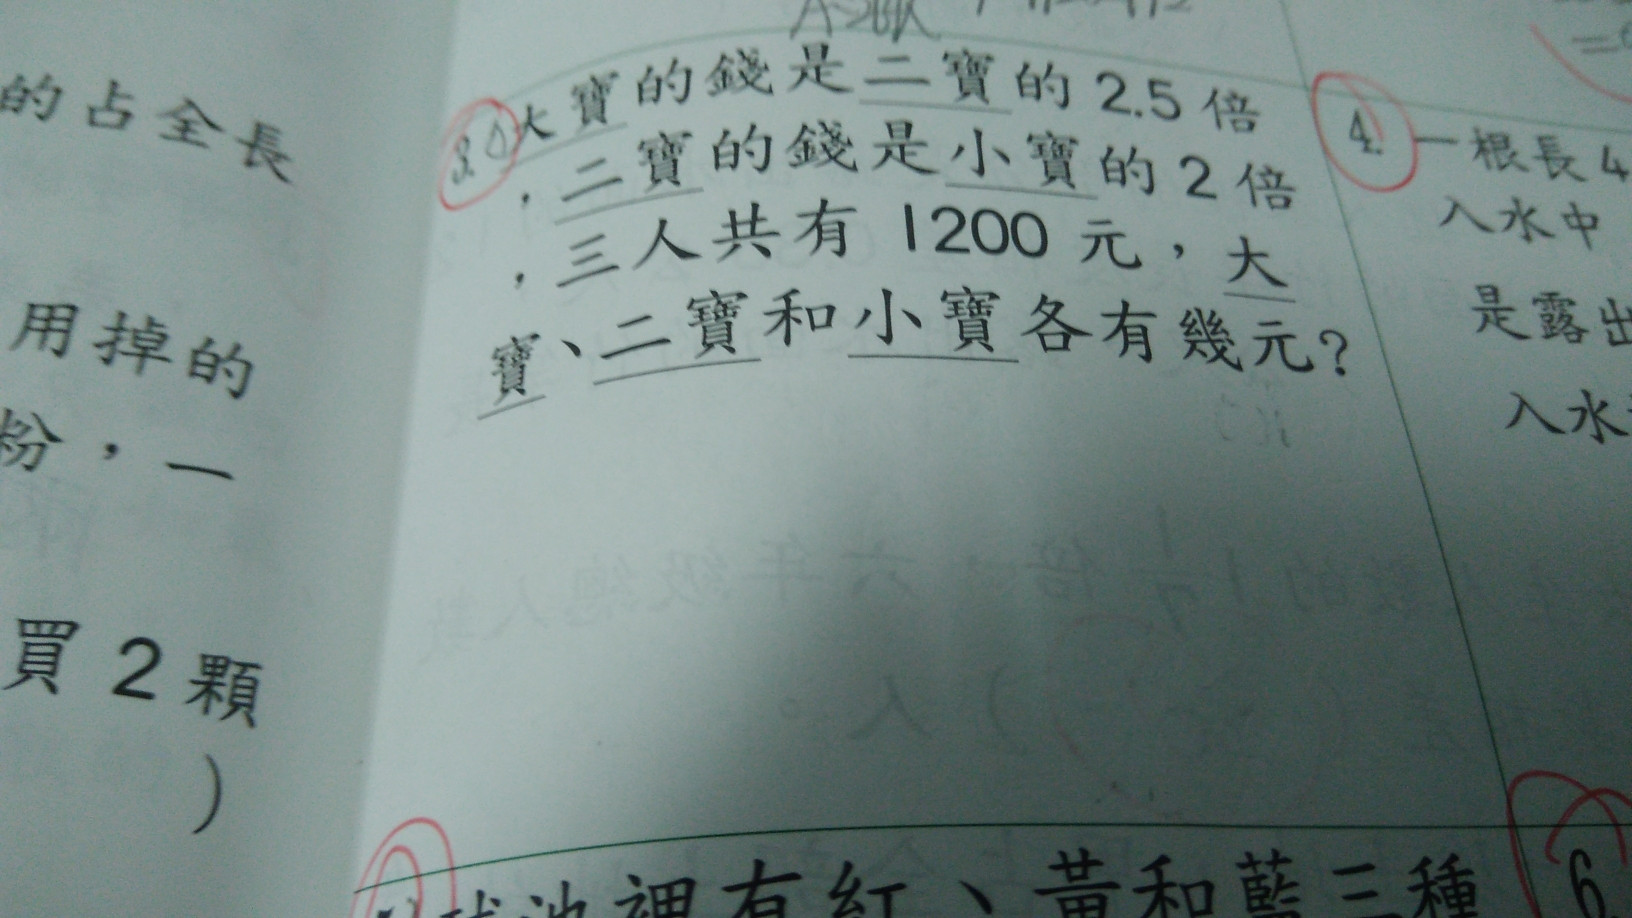 的占全長
用掉的
粉，一
買2顆
)
3. 大寶的錢是二寶的2.5倍
，二寶的錢是小寶的2倍
，三人共有1200元，大
寶、二寶和小寶各有幾元？
4. 一根長4
入水中
是露出
入水
池裡有紅、黃和藍三種
6.